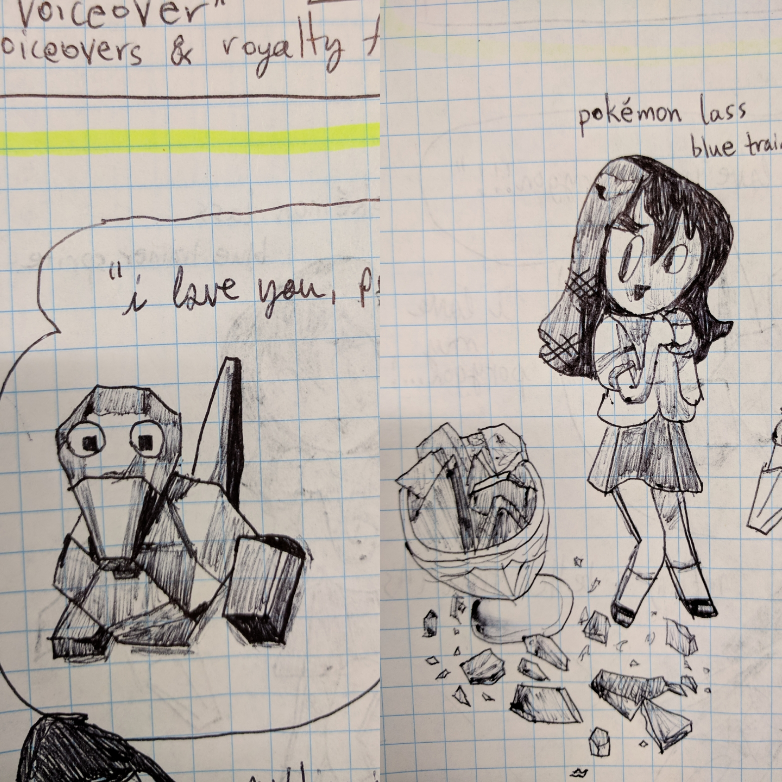 voiceover"
voiceovers & royalty
"i love you,
pokémon lass
blue